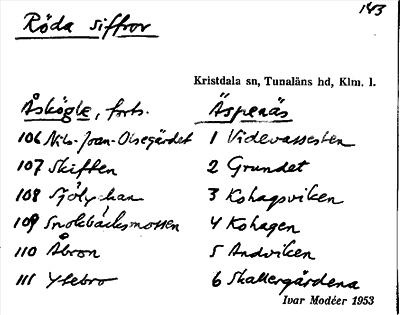 143
Röda siffror
Kristdala sn, Tunaläns hd, Klm. l.
Åskögle, forts.
106 Nils-Joan-Olsegärdet
107 Skiften
108
109 Snokbäcksmossen
110 Åbron
111 Ylebro
Äspenäs
1 Videvassesten
2 Grundet
3 Kohagsviken
4 Kohagen
5 Andviken
6 Skallergärdena
Ivar Modéer 1953